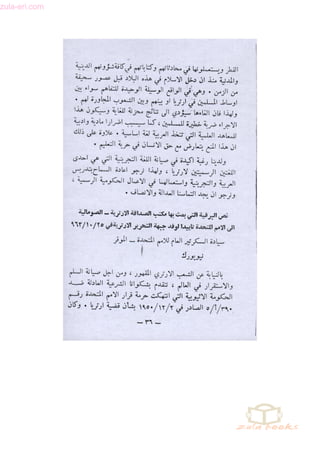 zula-eri.com
القطر ويستعملونها في محادثاتهم وكتاباتهم في كافة شؤونهم الدينية
والمدنية منذ ان دخل الاسلام في هذه البلاد قبل عصور سحيقة
من الزمن ٠ وهي في الواقع الوسيلة الوحيدة للتفاهم سواء بين
اوساط المسلمين في ارتريا او بينهم وبين الشعوب المجاورة لهم ٠
ولهذا فان الغاءها سيؤدي الى نتائج محزنة للغاية وسيكون هذا
الاجراء ضربة خطيرة للمسلمين ، كما سيسبب اضرارا مادية وادبية
للمعاهد العلمية التي تتخذ العربية لغة اساسية ٠ علاوة على ذلك
ان هذا المنع يتعارض مع حق الانسان في حرية التعليم ٠
ولدينا رغبة اكيدة في صيانة اللغة التجرينية التي هي احدى
اللغتين الرسميتين لارتريا ، ولهذا نرجو اعادة السماح بتدريس
العربية والتجرينية واستعمالهما في الاعمال الحكومية الرسمية ،
ونرجو ان يجد التماسنا العدالة والانصاف ٠
نص البرقية التي بعث بها مكتب الصداقة الارترية ــ الصومالية
الى الامم المتحدة تاييدا لوفد جبهة التحرير الارترية في ٩٦٣/١٠/٢٥
سيادة السكرتير العام للامم المتحدة ــ الموقر
نيويورك
بالنيابة عن الشعب الارتري المقهور ، ومن اجل صيانة السلم
والاستقرار في العالم ، نتقدم بشكوانا الشرعية العادلة ضــد
الحكومة الاثيوبية التي انتهكت حرمة قرار الامم المتحدة رقــم
٣٩٠/أ/٥ الصادر في ١٩٥٠/١٢/٢ بشأن قضية ارتريا ٠ وكان
ــ ٣٦ ــ
zula books